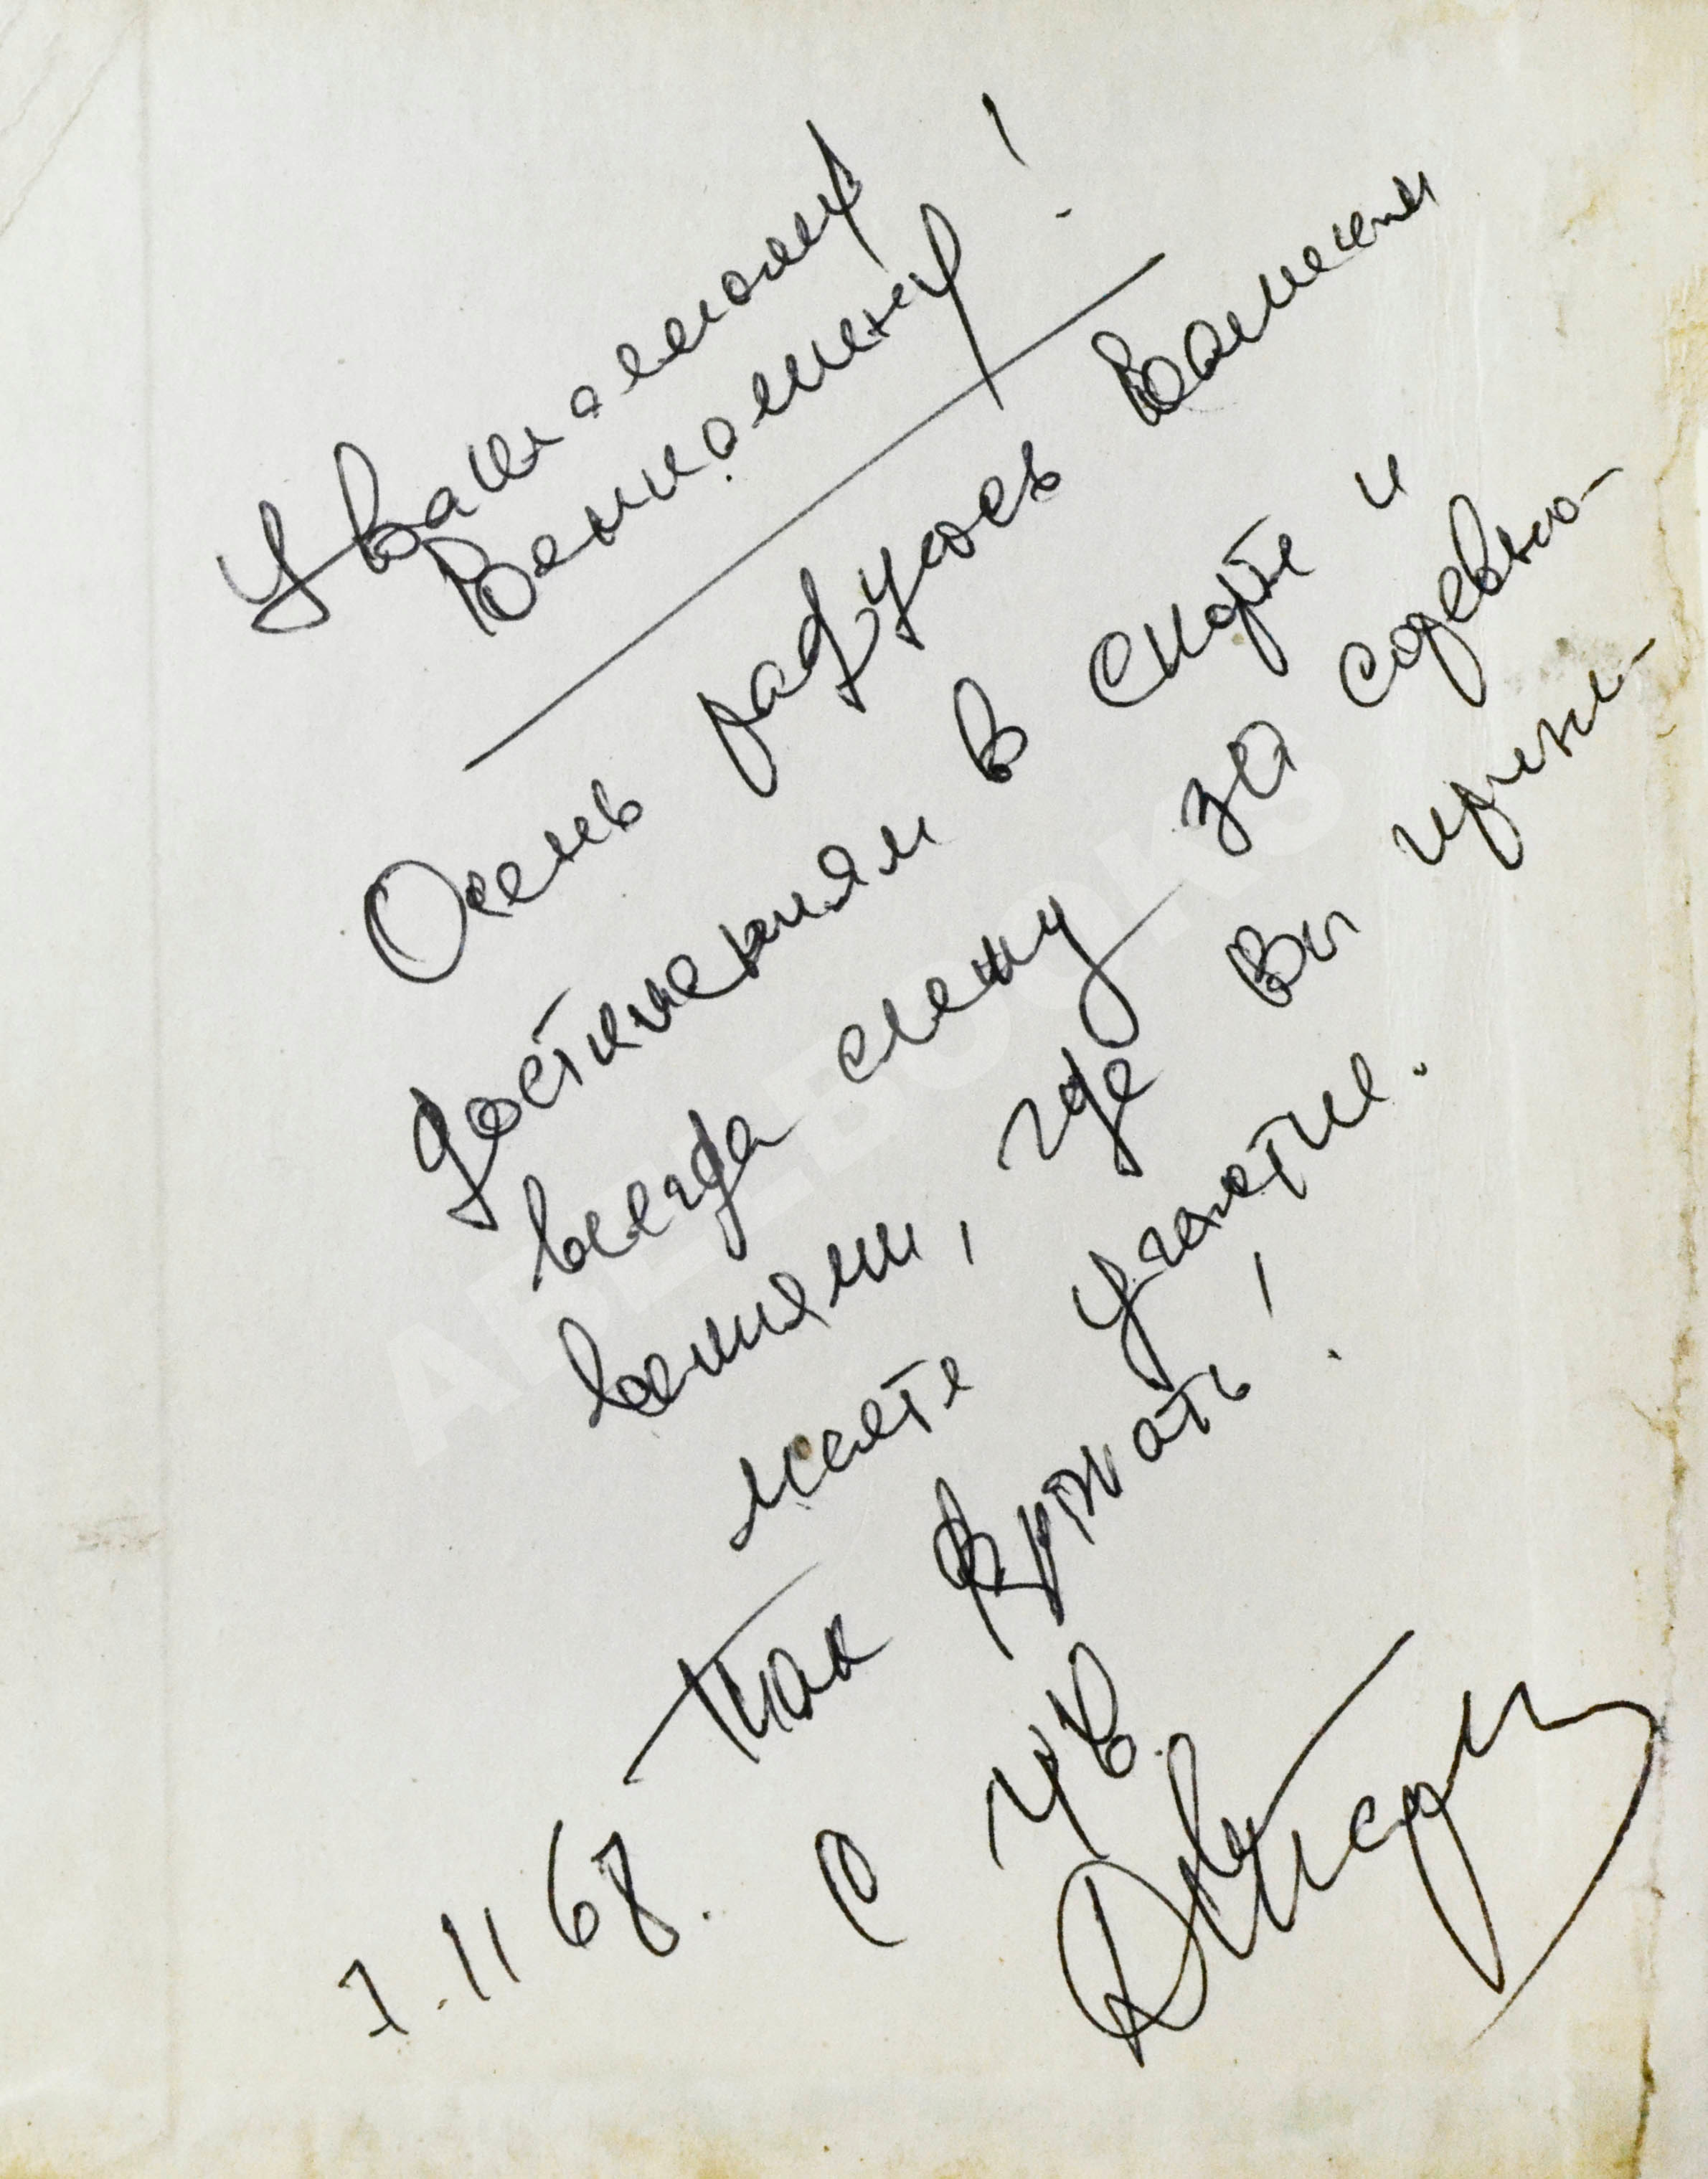 Уважаемому
Вениамину!
Очень радуюсь Вашим
достижениям в спорте и
всегда слежу за соревно-
ваниями, где Вы прини-
маете участие.
Так держать!
С ув.
7.11 68.